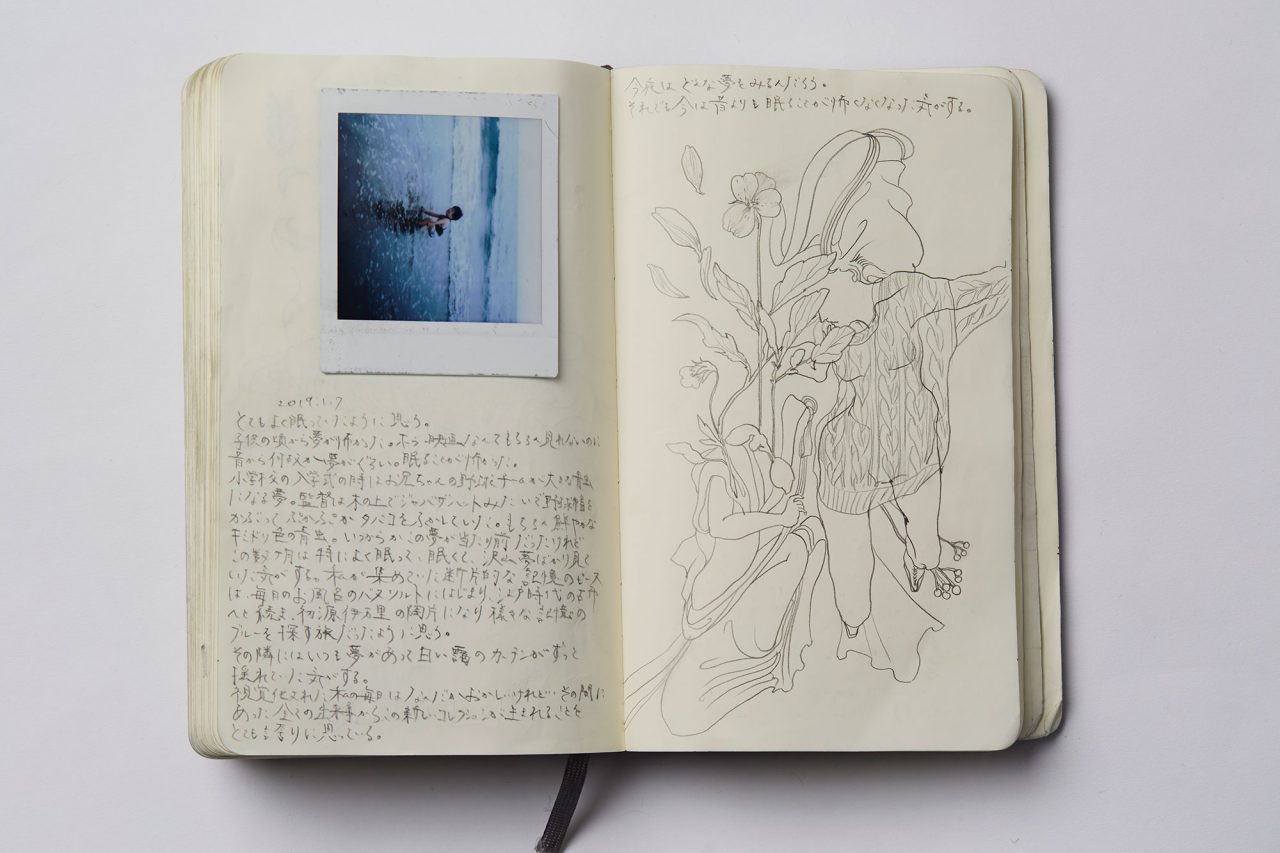 2019.1.7
とてもよく眠っていたように思う。
子供の頃から夢が怖かった。ホラー映画なんてもちろん見れないのに
昔から何故か夢がぐろい。眠ることが怖かった。
小学校の入学式の時はお兄ちゃんの野球チームが大きな青虫
になる夢。監督は木の上でジャバザハットみたいで野球帽を
かぶって ぷかぷか タバコをふかしていた。もちろん鮮やかな
キミドリ色の青虫。いつからかこの夢が当たり前だったけれど
この数ヶ月は特によく眠って、眠くて、沢山夢ばかり見て
いた気がする。私が集めていた断片的な記憶のピース
は、毎日のお風呂のバスソルトにはじまり、江戸時代の古布
へと続き、初源伊万里の陶片になり様々な記憶の
ブルーを探す旅だったように思う。
その隣にはいつも夢があって白い霧のカーテンがずっと
揺れていた気がする。
視覚化された私の毎日はなんだかおかしいけれど、その間に
あった全ての出来事からこの新しいコレクションが生まれることを
とても誇りに思っている。
今夜はどんな夢をみるんだろう。
それでも今は昔よりも眠ることが怖くなくなった気がする。